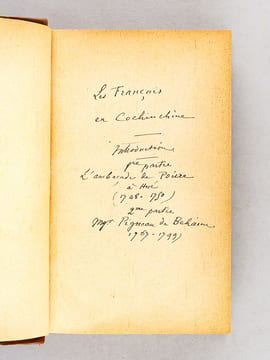 Les Français
en Cochinchine
Introduction
1re partie
L'ambassade de Poivre
à Hué
(1748-1750)
2me partie
Mgr Pigneau de Behaine
1767-1799)